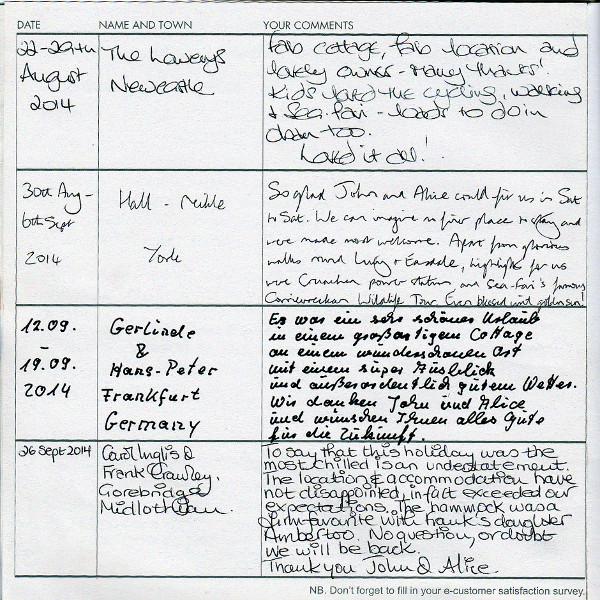 DATE NAME AND TOWN YOUR COMMENTS
22-29th August 2014
The Lowerys
Newcastle
Fab cottage, fab location and
lovely owner - Many thanks!
Kids loved the cycling, walking
& Sea. fari - loads to do in
Oban too.
Loved it all!
30th Aug -
6th Sept
2014
Hall -
York
So glad John and Alice could fit us in Sat
to Sat. We can imagine no finer place to stay and
were made most welcome. Apart from glorious
walks round Luing & Easdale, highlights for us
were Cruachan power station and Sea-Fari's famous
Corrievreckan Wildlife Tour. Even blessed with golden sun!
12.09.
-
19.09.
2014
Gerlinde
&
Hans-Peter
Frankfurt
Germany
Es war ein sehr schöner Urlaub
in einem großartigem Cottage
an einem wunderschönen Ort
mit einem super Ausblick
und außerordentlich gutem Wetter.
Wir danken John und Alice
und wünschen Ihnen alles Gute
für die Zukunft.
26 Sept 2014
Carol Inglis &
Frank Crawley,
Gorebridge
Midlothian.
To say that this holiday was the
most chilled is an understatement.
The location & accommodation have
not disappointed, in fact exceeded our
expectations. The hammock was a
firm favourite with Frank's daughter
Amber too. No question, or doubt
we will be back.
Thank you John & Alice.
NB. Don't forget to fill in your e-customer satisfaction survey.